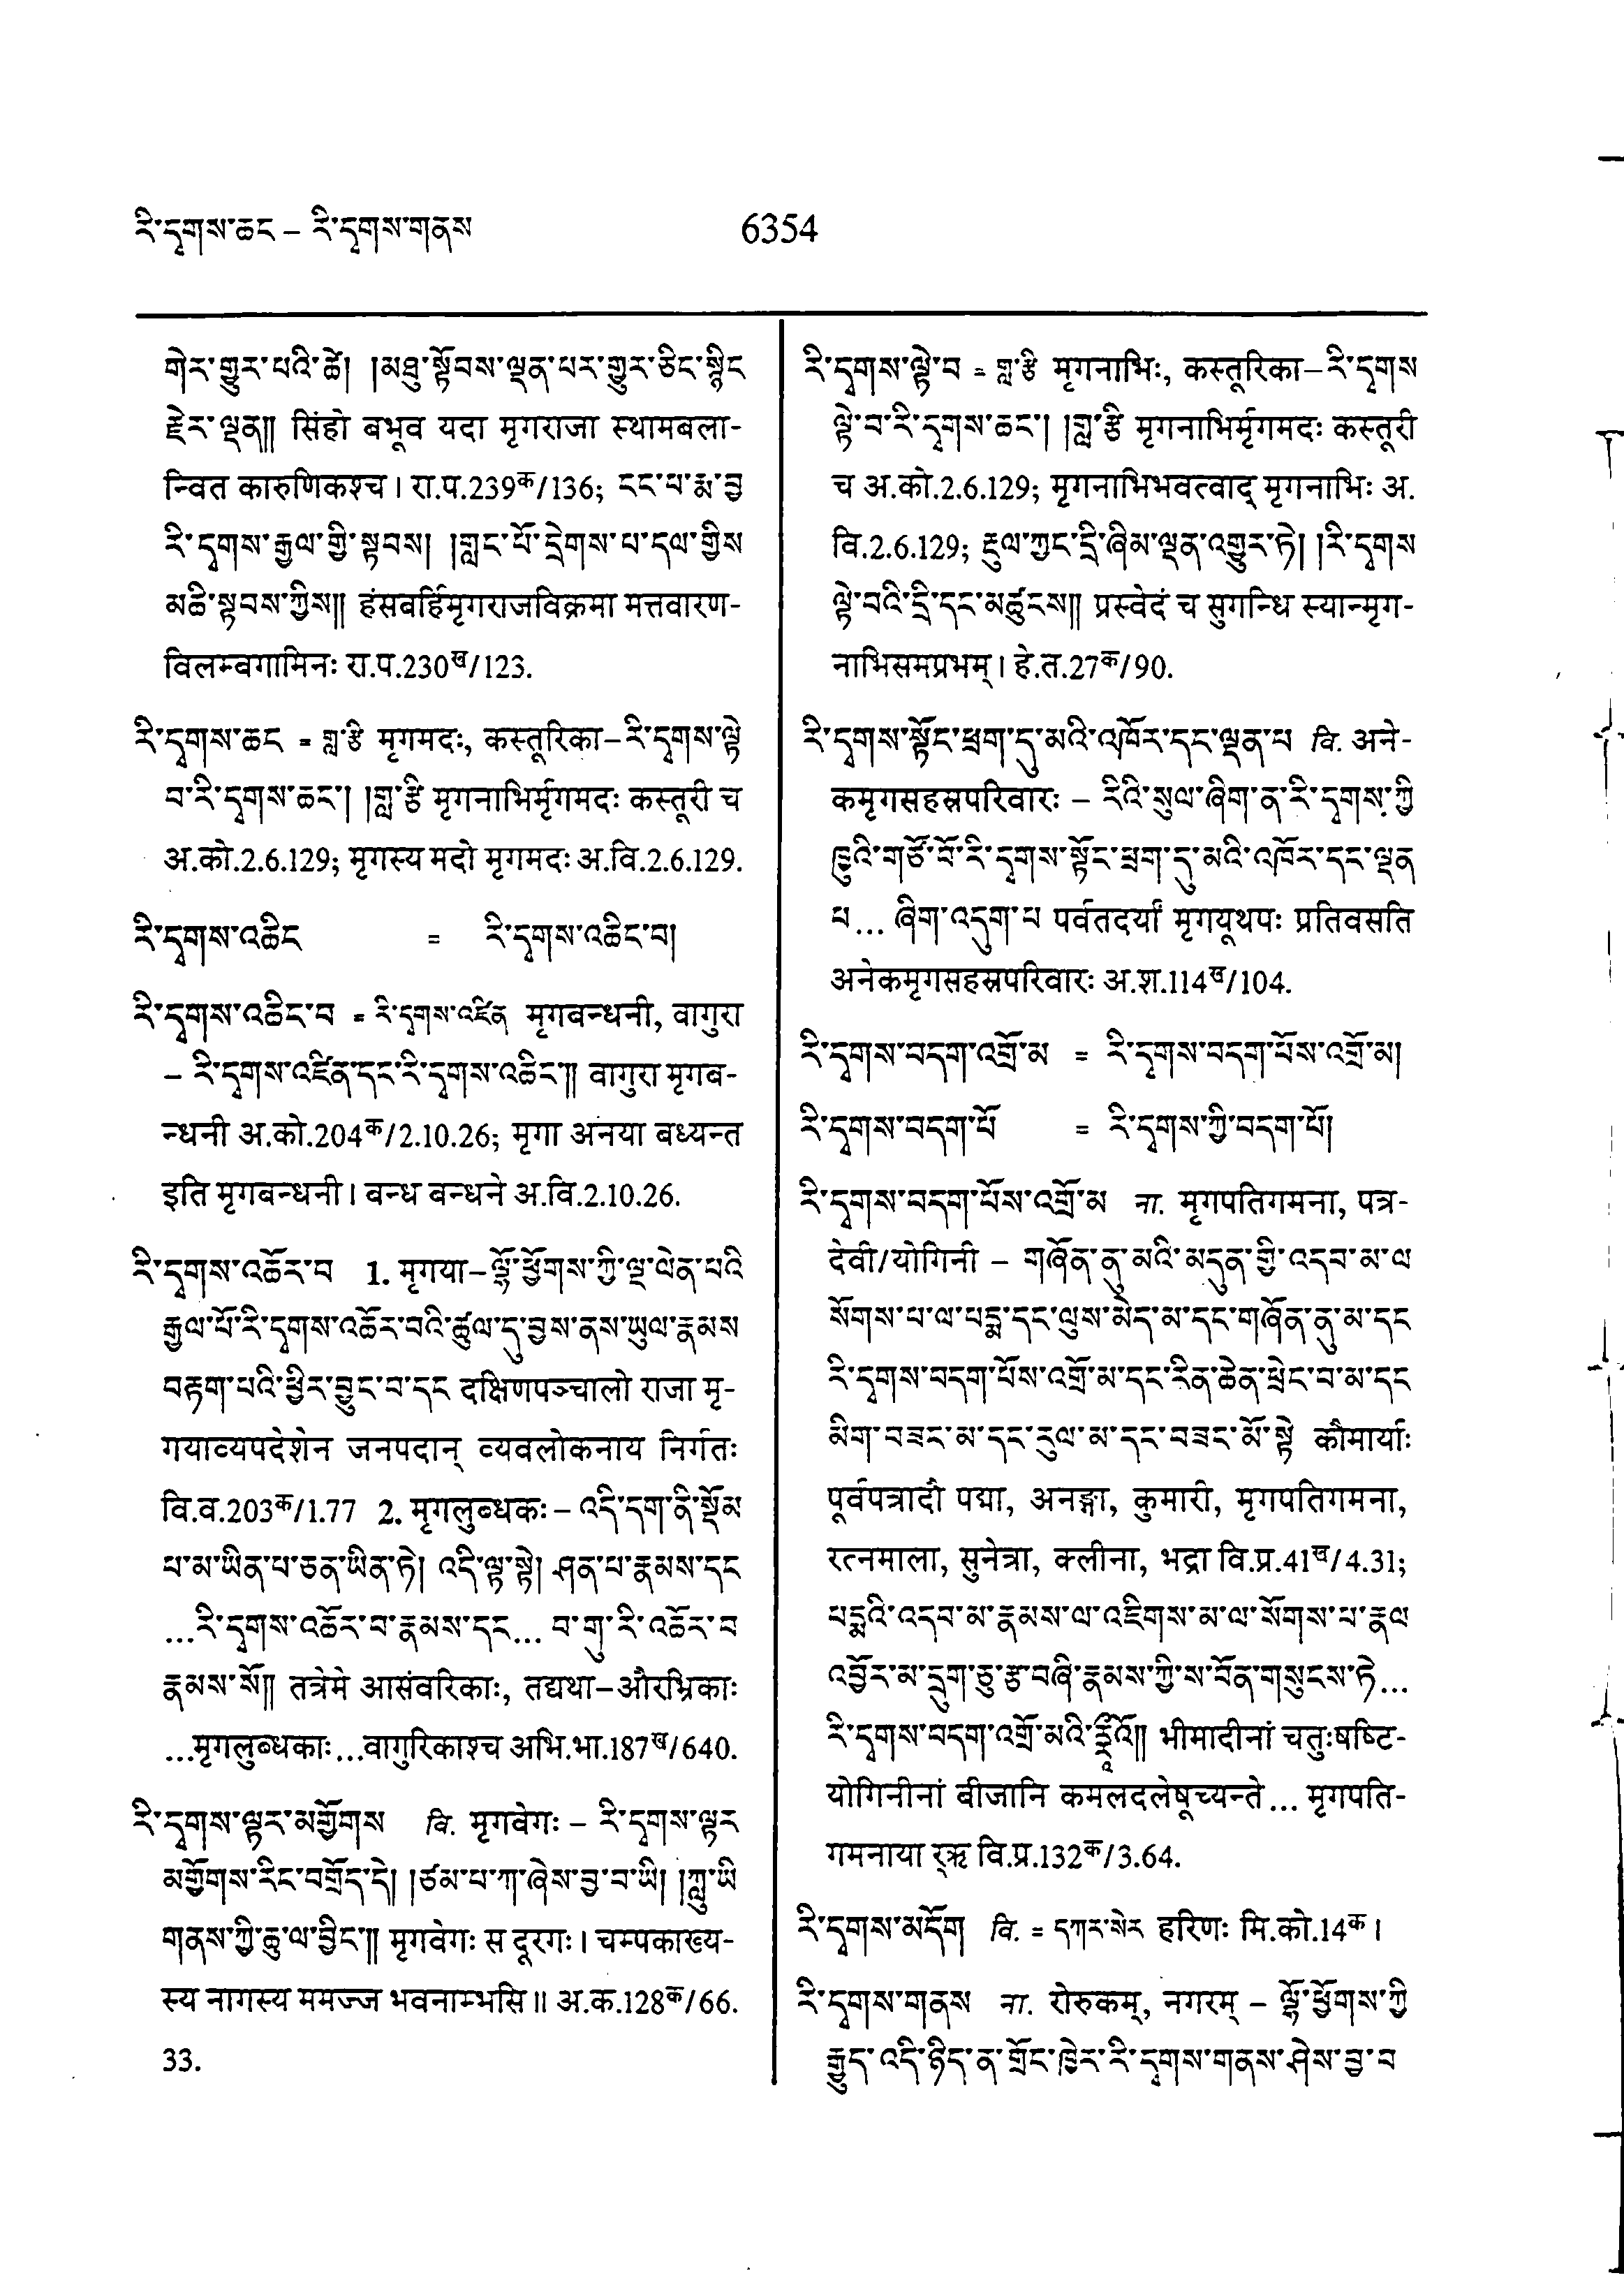 རི་དྭགས་ཆང – རི་དྭགས་གནས 6354
གེར་གྱུར་པའི་ཚེ། །མཐུ་སྟོབས་ལྡན་པར་གྱུར་ཅིང་སྙིང
རྗེར་ལྡན༎ सिंहो बभूव यदा मृगराजा स्थामबला-
न्वित कारुणिकश्च। रा.प.239क/136; ངང་པ་རྨ་བྱ
རི་དྭགས་རྒྱལ་གྱི་སྟབས། །གླང་པོ་དྲེགས་པ་དལ་གྱིས
མཆི་སྟབས་ཀྱིས༎ हंसबर्हिमृगराजविक्रमा मत्तवारण-
विलम्बगामिनः रा.प.230ख/123.
རི་དྭགས་ཆང = གླ་རྩི मृगमदः, कस्तूरिका–རི་དྭགས་ལྟེ
བ་རི་དྭགས་ཆང་། །གླ་རྩི मृगनाभिर्मृगमदः कस्तूरी च
अ.को.2.6.129; मृगस्य मदो मृगमदः अ.वि.2.6.129.
རི་དྭགས་འཆིང = རི་དྭགས་འཆིང་བ།
རི་དྭགས་འཆིང་བ = རི་དྭགས་འཛིན मृगबन्धनी, वागुरा
– རི་དྭགས་འཛིན་དང་རི་དྭགས་འཆིང་༎ वागुरा मृगब-
न्धनी अ.को.204क/2.10.26; मृगा अनया बध्यन्त
इति मृगबन्धनी। बन्ध बन्धने अ.वि.2.10.26.
རི་དྭགས་འཆོར་བ 1. मृगया–ལྷོ་ཕྱོགས་ཀྱི་ལྔ་ལེན་པའི
རྒྱལ་པོ་རི་དྭགས་འཆོར་བའི་ཚུལ་དུ་བྱས་ནས་ཡུལ་རྣམས
བརྟག་པའི་ཕྱིར་བྱུང་བ་དང दक्षिणपञ्चालो राजा मृ-
गयाव्यपदेशेन जनपदान् व्यवलोकनाय निर्गतः
वि.व.203क/1.77 2. मृगलुब्धकः – འདི་དག་ནི་སྡོམ
པ་མ་ཡིན་པ་ཅན་ཡིན་ཏེ། འདི་ལྟ་སྟེ། ཤན་པ་རྣམས་དང
...རི་དྭགས་འཆོར་བ་རྣམས་དང... བ་གུ་རི་འཆོར་བ
རྣམས་སོ༎ तत्रेमे आसंवरिकाः, तद्यथा–औरभ्रिकाः
...मृगलुब्धकाः...वागुरिकाश्च अभि.भा.187ख/640.
རི་དྭགས་ལྟར་མགྱོགས वि. मृगवेगः – རི་དྭགས་ལྟར
མགྱོགས་རིང་བགྲོད་དེ། །ཙམ་པ་ཀ་ཞེས་བྱ་བ་ཡི། །ཀླུ་ཡི
གནས་ཀྱི་ཆུ་ལ་བྱིང་༎ मृगवेगः स दूरगः। चम्पकाख्य-
स्य नागस्य ममज्ज भवनाम्भसि॥ अ.क.128क/66.
33.
རི་དྭགས་ལྟེ་བ = གླ་རྩི मृगनाभिः, कस्तूरिका–རི་དྭགས
ལྟེ་བ་རི་དྭགས་ཆང་། །གླ་རྩི मृगनाभिर्मृगमदः कस्तूरी
च अ.को.2.6.129; मृगनाभिभवत्वाद् मृगनाभिः अ.
वि.2.6.129; རྡུལ་ཀྱང་དྲི་ཞིམ་ལྡན་འགྱུར་ཏེ། །རི་དྭགས
ལྟེ་བའི་དྲི་དང་མཚུངས༎ प्रस्वेदं च सुगन्धि स्यान्मृग-
नाभिसमप्रभम्। हे.त.27क/90.
རི་དྭགས་སྟོང་ཕྲག་དུ་མའི་འཁོར་དང་ལྡན་པ वि. अने-
कमृगसहस्रपरिवारः – རིའི་སུལ་ཞིག་ན་རི་དྭགས་ཀྱི
ཁྱུའི་གཙོ་བོ་རི་དྭགས་སྟོང་ཕྲག་དུ་མའི་འཁོར་དང་ལྡན
པ... ཞིག་འདུག་པ पर्वतदर्यां मृगयूथपः प्रतिवसति
अनेकमृगसहस्रपरिवारः अ.श.114ख/104.
རི་དྭགས་བདག་འགྲོ་མ = རི་དྭགས་བདག་པོས་འགྲོ་མ།
རི་དྭགས་བདག་པོ = རི་དྭགས་ཀྱི་བདག་པོ།
རི་དྭགས་བདག་པོས་འགྲོ་མ ना. मृगपतिगमना, पत्र-
देवी/योगिनी – གཞོན་ནུ་མའི་མདུན་གྱི་འདབ་མ་ལ
སོགས་པ་ལ་པདྨ་དང་ལུས་མེད་མ་དང་གཞོན་ནུ་མ་དང
རི་དྭགས་བདག་པོས་འགྲོ་མ་དང་རིན་ཆེན་ཕྲེང་བ་མ་དང
མིག་བཟང་མ་དང་རུལ་མ་དང་བཟང་མོ་སྟེ कौमार्याः
पूर्वपत्रादौ पद्मा, अनङ्गा, कुमारी, मृगपतिगमना,
रत्नमाला, सुनेत्रा, क्लीना, भद्रा वि.प्र.41ख/4.31;
པདྨའི་འདབ་མ་རྣམས་ལ་འཇིགས་མ་ལ་སོགས་པ་རྣལ
འབྱོར་མ་དྲུག་ཅུ་རྩ་བཞི་རྣམས་ཀྱི་ས་བོན་གསུངས་ཏེ...
རི་དྭགས་བདག་འགྲོ་མའི་ भीमादीनां चतुःषष्टि-
योगिनीनां बीजानि कमलदलेषूच्यन्ते... मृगपति-
गमनाया र्‍ऋ वि.प्र.132क/3.64.
རི་དྭགས་མདོག वि. = དཀར་སེར हरिणः मि.को.14क।
རི་དྭགས་གནས ना. रोरुकम्, नगरम् – ལྷོ་ཕྱོགས་ཀྱི
རྒྱུད་འདི་ཉིད་ན་གྲོང་ཁྱེར་རི་དྭགས་གནས་ཤེས་བྱ་བ